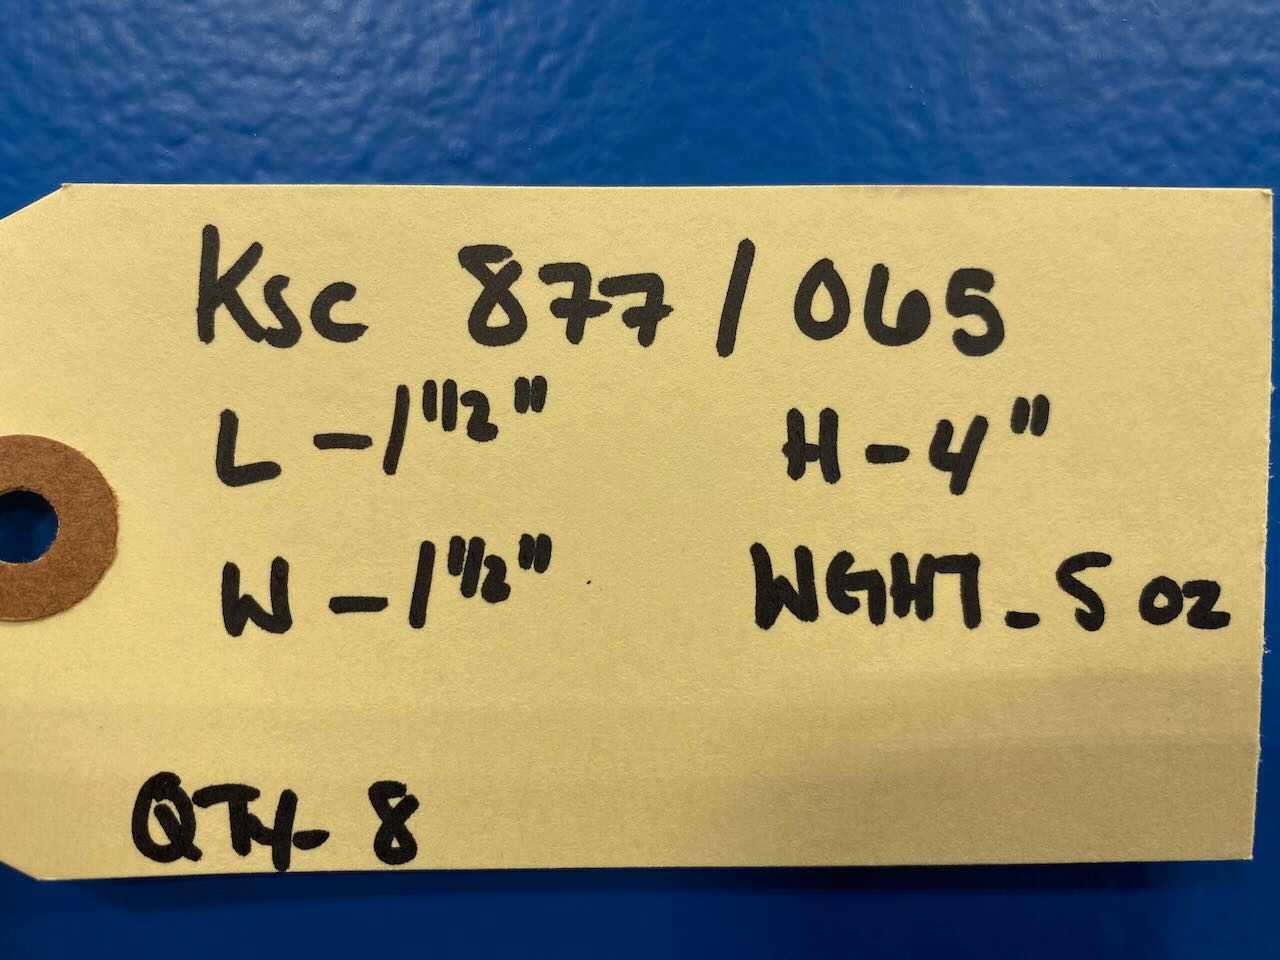 Ksc 877/065
L-1 1/2" H-4"
W-1 1/2" WGHT-5 oz
QTY-8